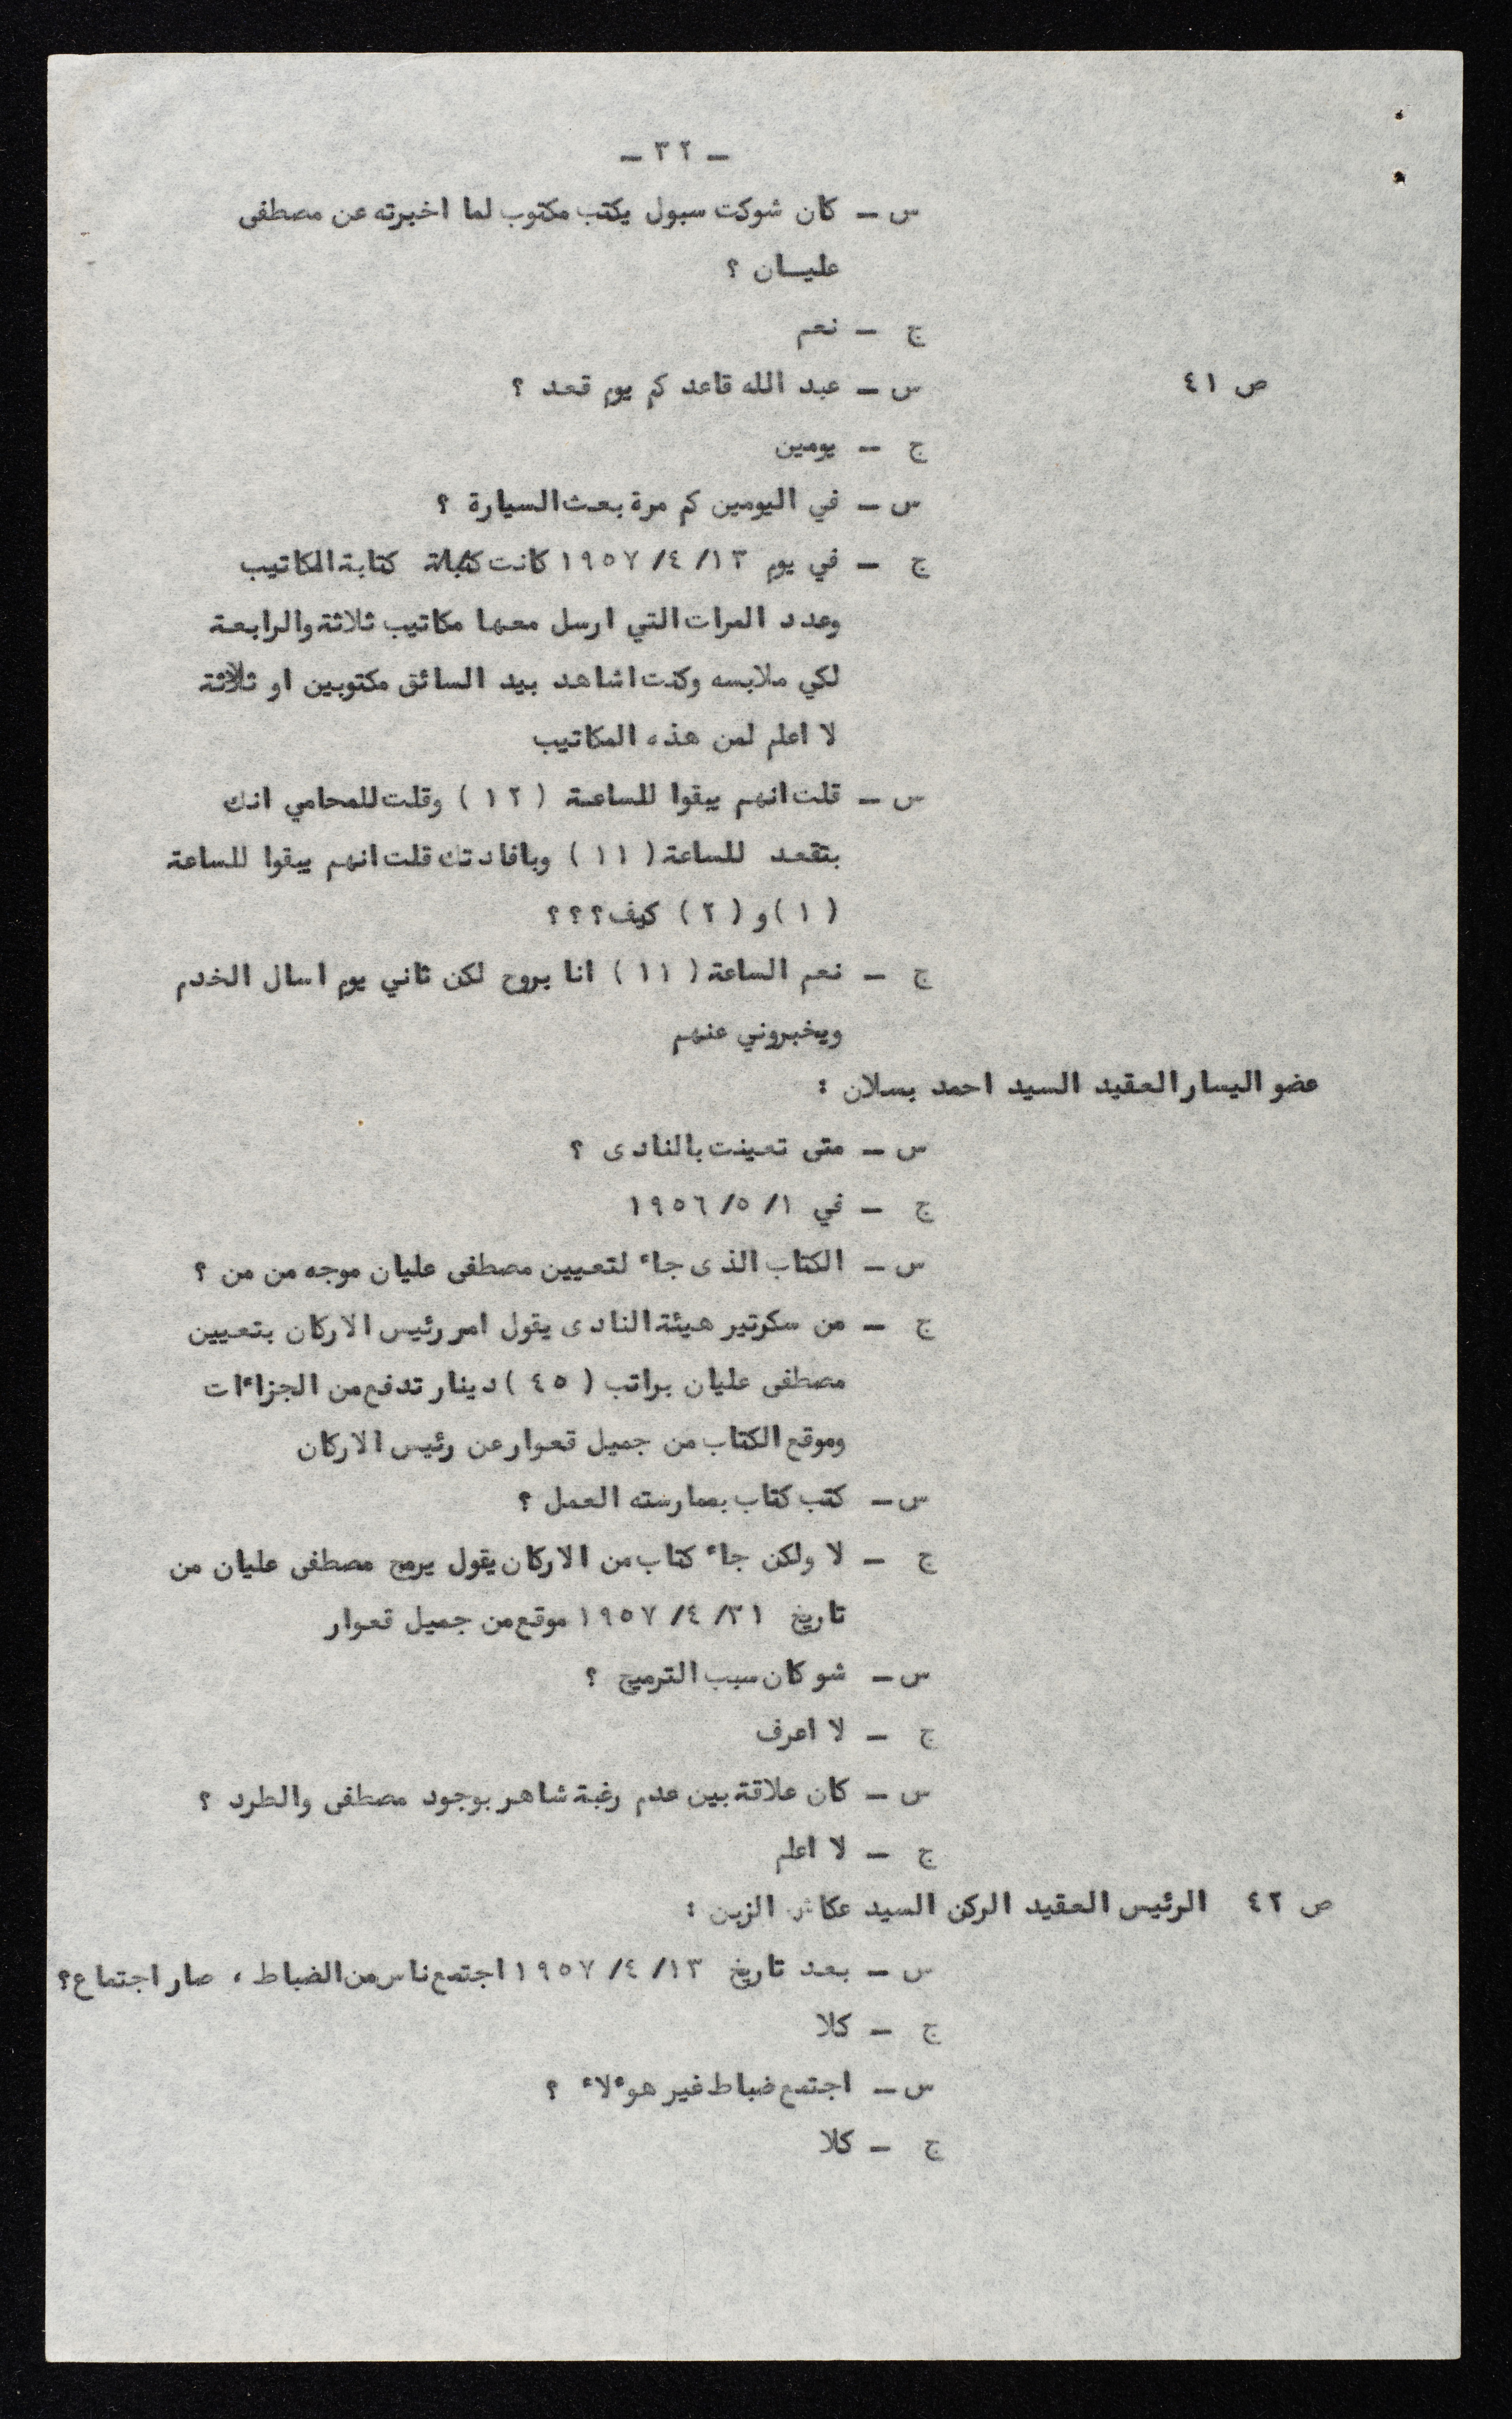 – ٣٢ –
س – كان شوكت سبول يكتب مكتوب لما اخبرته عن مصطفى
عليـان ؟
ج – نعم
ص ٤١ س – عبد الله قاعد كم يوم قعد ؟
ج – يومين
س – في اليومين كم مرة بعث السيارة ؟
ج – في يوم ١٣/ ٤/ ١٩٥٧ كانت كتابة المكاتيب
وعدد المرات التي ارسل معها مكاتيب ثلاثة والرابعة
لكي ملابسه وكنت اشاهد بيد السائق مكتوبين او ثلاثة
لا اعلم لمن هذه المكاتيب
س – قلت انهم يبقوا للساعة ( ١٢ ) وقلت للمحامي انك
بتقعد للساعة ( ١١ ) وبافادتك قلت انهم يبقوا للساعة
( ١ ) و ( ٢ ) كيف ؟ ؟ ؟
ج – نعم الساعة ( ١١ ) انا بروح لكن ثاني يوم اسال الخدم
ويخبروني عنهم
عضو اليسار العقيد السيد احمد بسلان :
س – متى تعينت بالنادى ؟
ج – في ١/ ٥/ ١٩٥٦
س – الكتاب الذى جاء لتعيين مصطفى عليان موجه من من ؟
ج – من سكرتير هيئة النادى يقول امر رئيس الاركان بتعيين
مصطفى عليان براتب ( ٤٥ ) دينار تدفع من الجزاءات
وموقع الكتاب من جميل قعوار عن رئيس الاركان
س – كتب كتاب بممارسته العمل ؟
ج – لا ولكن جاء كتاب من الاركان يقول يرمج مصطفى عليان من
تاريخ ٣١/ ٤/ ١٩٥٧ موقع من جميل قعوار
س – شو كان سبب الترميج ؟
ج – لا اعرف
س – كان علاقة بين عدم رغبة شاهر بوجود مصطفى والطرد ؟
ج – لا اعلم
ص ٤٢ الرئيس العقيد الركن السيد عكاش الزبن :
س – بعد تاريخ ١٣/ ٤/ ١٩٥٧ اجتمع ناس من الضباط ، صار اجتماع ؟
ج – كلا
س – اجتمع ضباط غير هوءلاء ؟
ج – كلا